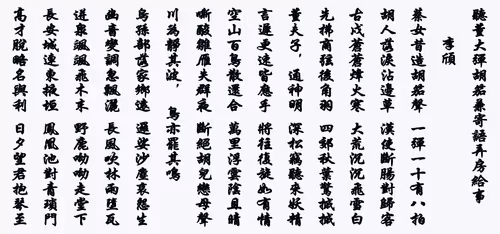 聽董大彈胡笳兼寄語弄房給事
李頎
蔡女昔造胡笳聲 一彈一十有八拍
胡人落淚沾邊草 漢使斷腸對歸客
古戍蒼蒼烽火寒 大荒沉沉飛雪白
先拂商弦後角羽 四郊秋葉驚摵摵
董夫子，通神明 深松竊聽來妖精
言遲更速皆應手 將往復旋如有情
空山百鳥散還合 萬里浮雲陰且晴
嘶酸雛雁失群夜 斷絕胡兒戀母聲
川為靜其波， 鳥亦罷其鳴
烏孫部落家鄉遠 邏娑沙塵哀怨生
幽音變調忽飄灑 長風吹林雨墮瓦
迸泉颯颯飛木末 野鹿呦呦走堂下
長安城連東掖垣 鳳凰池對青瑣門
高才脫略名與利 日夕望君抱琴至